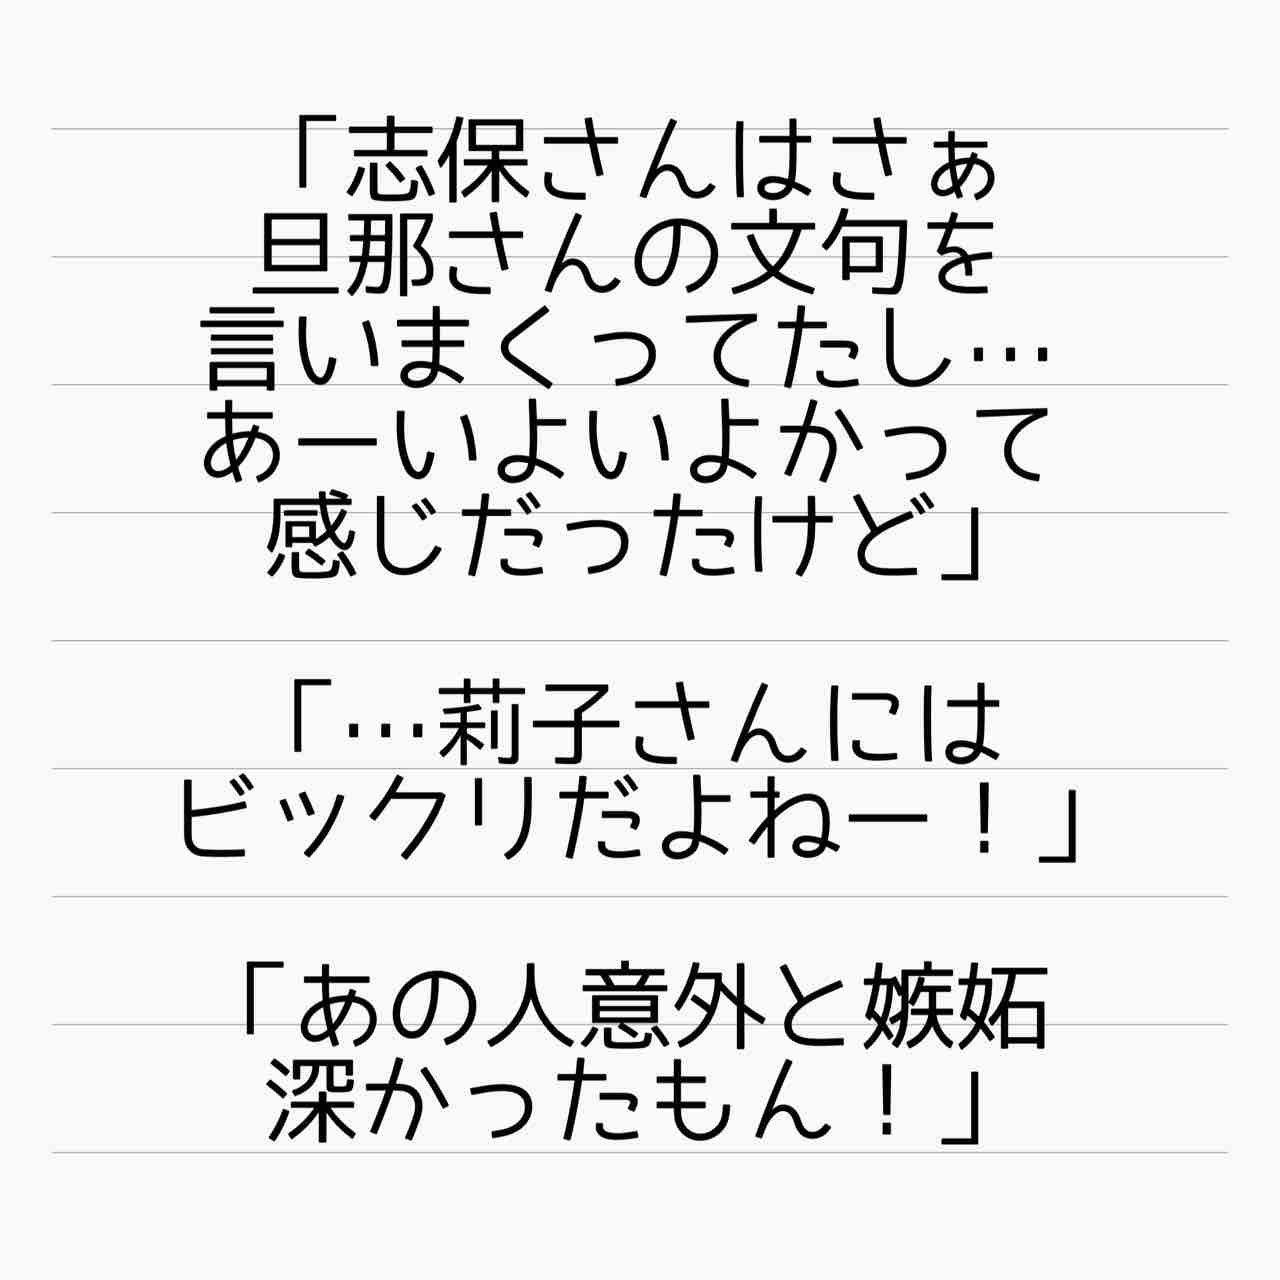 「志保さんはさぁ
旦那さんの文句を
言いまくってたし…
あーいよいよかって
感じだったけど」
「…莉子さんには
ビックリだよねー！」
「あの人意外と嫉妬
深かったもん！」